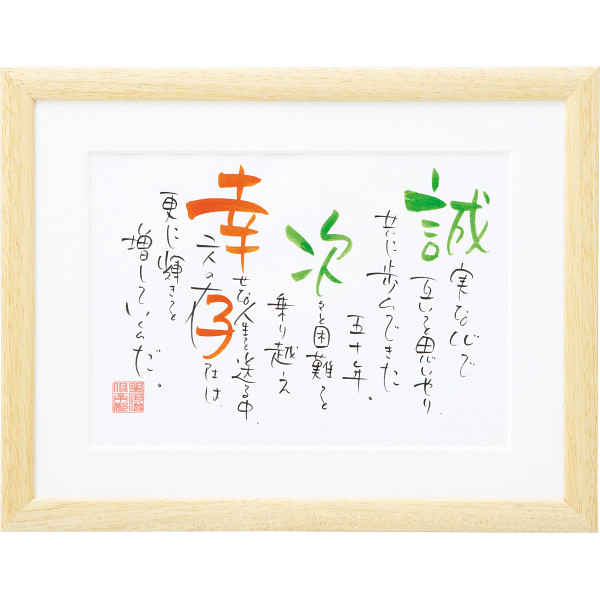 誠実な心で
互いを思いやり
共に歩んできた
五十年。
次々と困難を
乗り越え
幸せな人生を送る中、
二人の存在は
更に輝きを
増していくのだ。